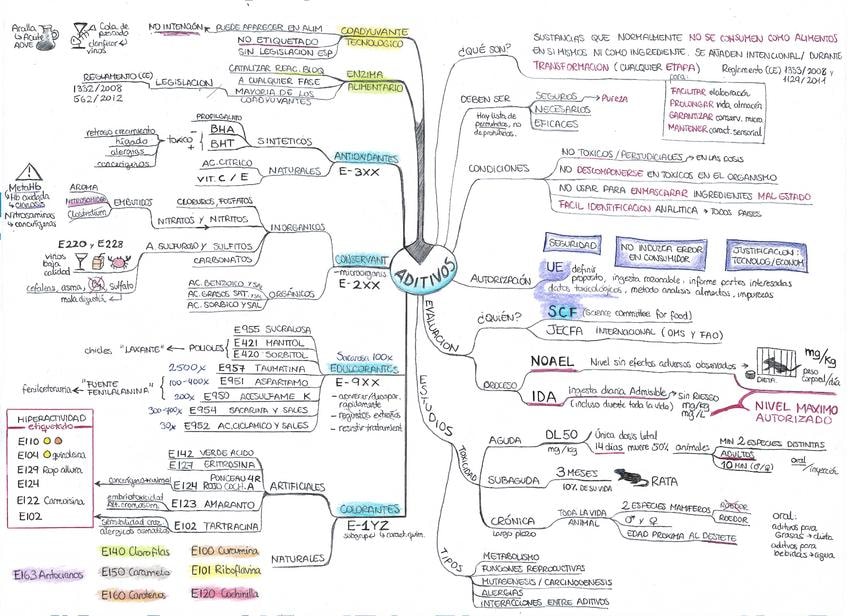 ADITIVOS
COADYUVANTE
TECNOLÓGICO
NO INTENCIÓN
PUEDE APARECER EN ALIM
NO ETIQUETADO
SIN LEGISLACIÓN ESP
Arcilla
Acute
AOVE
Cola de
pescado
clarificar
vinos
ENZIMA
ALIMENTARIO
CATALIZAR REAC. BLOQ
A CUALQUIER FASE
MAYORÍA DE LOS
COADYUVANTES
LEGISLACIÓN
REGLAMENTO (CE)
1332/2008
562/2012
ANTIOXIDANTES
E-3XX
SINTETICOS
PROPILGALATO
BHA
BHT
toxico
retraso crecimiento
hígado
alergias
cancerígenos
NATURALES
AC. CITRICO
VIT. C / E
CONSERVANT
-microorganis
E-2XX
INORGANICOS
CLORUROS, FOSFATOS
NITRATOS y NITRITOS
EMBUTIDOS
AROMA
Nitrosomioglob
Clostridium
MetaHb
Hb oxidada
cianosis
Nitrosaminas
cancerígenas
A. SULFUROSO y SULFITOS
CARBONATOS
E220 y E228
vinos
baja
calidad
cefaleas, asma, sulfato
mala digestión
ORGÁNICOS
AC. BENZOICO y SAL
AC. GRASOS SAT. y SAL
AC. SORBICO y SAL
EDULCORANTES
Sacarosa 100x
E-9XX
-aparecer/desapar.
rapidamente
-regustos extraños
-resistir tratamient
E955 SUCRALOSA
E421 MANITOL
E420 SORBITOL
POLIOLES
"LAXANTE"
chicles
2.500x E957 TAUMATINA
100-400x E951 ASPARTAMO
"FUENTE
FENILALANINA"
fenilcetonuria
200x E950 ACESULFAME K
300-400x E954 SACARINA y SALES
30x E952 AC. CICLAMICO y SALES
COLORANTES
E-1YZ
subgrupo caract quim.
ARTIFICIALES
E142 VERDE ACIDO
E127 ERITROSINA
E124 PONCEAU 4R
ROJO COCH. A
cancerígeno animal
E123 AMARANTO
embriotoxicidad
E102 TARTRACINA
sensibilidad cruz.
alergicos asmaticos
HIPERACTIVIDAD
etiquetado
E110
E104 quinoleina
E129 Rojo allura
E124
E122 Carmosina
E102
NATURALES
E140 Clorofilas
E100 Curcumina
E163 Antocianos
E150 Caramelo
E101 Riboflavina
E160 Carotenos
E120 Cochinilla
¿QUÉ SON?
SUSTANCIAS QUE NORMALMENTE NO SE CONSUMEN COMO ALIMENTOS
EN SI MISMOS NI COMO INGREDIENTE. SE AÑADEN INTENCIONAL/ DURANTE
TRANSFORMACIÓN (CUALQUIER ETAPA)
Reglamento (CE) 1333/2008 y
1129/2011
para:
FACILITAR elaboración
PROLONGAR vida, almacén
GARANTIZAR conserv. micro
MANTENER caract. sensorial
DEBEN SER
Hay lista de
permitidos, no
de prohibidos.
SEGUROS
Pureza
NECESARIOS
EFICACES
CONDICIONES
NO TÓXICOS / PERJUDICIALES EN LAS DOSIS
NO DESCOMPONERSE EN TOXICOS EN EL ORGANISMO
NO USAR PARA ENMASCARAR INGREDIENTES MAL ESTADO
FACIL IDENTIFICACION ANALITICA TODOS PAISES
AUTORIZACIÓN
SEGURIDAD
NO INDUZCA ERROR
EN CONSUMIDOR
JUSTIFICACION:
TECNOLOG/ECONOM.
UE definir
proposito, ingesta razonable, informe partes interesadas
datos toxicologicos, metodo analisis alimentos, impurezas
EVALUACIÓN
¿QUIÉN?
SCF (Science committee for food)
JECFA INTERNACIONAL (OMS y FAO)
PROCESO
NOAEL Nivel sin efectos adversos observados
DIETA
mg/kg
peso
corporal/día
IDA Ingesta diaria Admisible
(incluso durante toda la vida)
Sin RIESGO
mg/kg
mg/L
NIVEL MAXIMO
AUTORIZADO
ESTUDIOS
TOXICIDAD
AGUDA
DL50
mg/kg
Única dosis letal
14 días muere 50% animales
MIN 2 ESPECIES DISTINTAS
ADULTOS
oral
inyección
SUBAGUDA
3 MESES
10% DE SU VIDA
RATA
CRÓNICA
Largo plazo
TODA LA VIDA
ANIMAL
2 ESPECIES MAMIFEROS
ROEDOR
♂ y ♀
EDAD PROXIMA AL DESTETE
oral:
aditivos para
Grasas dieta
aditivos para
bebidas agua
TIPOS
METABOLISMO
FUNCIONES REPRODUCTIVAS
MUTAGENESIS / CARCINOGENESIS
ALERGIAS
INTERACCIONES ENTRE ADITIVOS